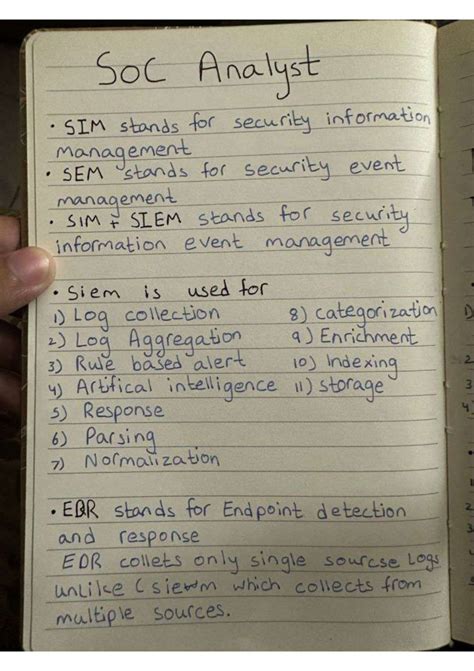 SOC Analyst
• SIM stands for security information
management
• SEM stands for security event
management
• SIM + SIEM stands for security
information event management
• Siem is used for
1) Log collection
2) Log Aggregation
3) Rule based alert
4) Artifical intelligence
5) Response
6) Parsing
7) Normalization
8) categorization
9) Enrichment
10) Indexing
11) storage
• EDR stands for Endpoint detection
and response
EDR collets only single sourcse Logs
unlike (siem which collects from
multiple sources.